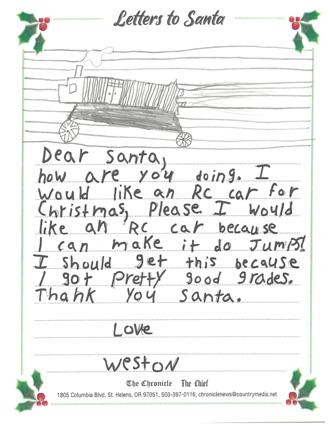 Letters to Santa
Dear Santa,
how are you doing. I
would like an Rc car for
Christmas, Please I would
like an Rc car because
I can make it do Jumps!
I should get this because
I got Pretty good grades.
Thank you Santa.
Love
Weston
The Chronicle The Chief
1805 Columbia Blvd, St. Helens, OR 97051, 503-397-0116, chroniclenews@countrymedia.net